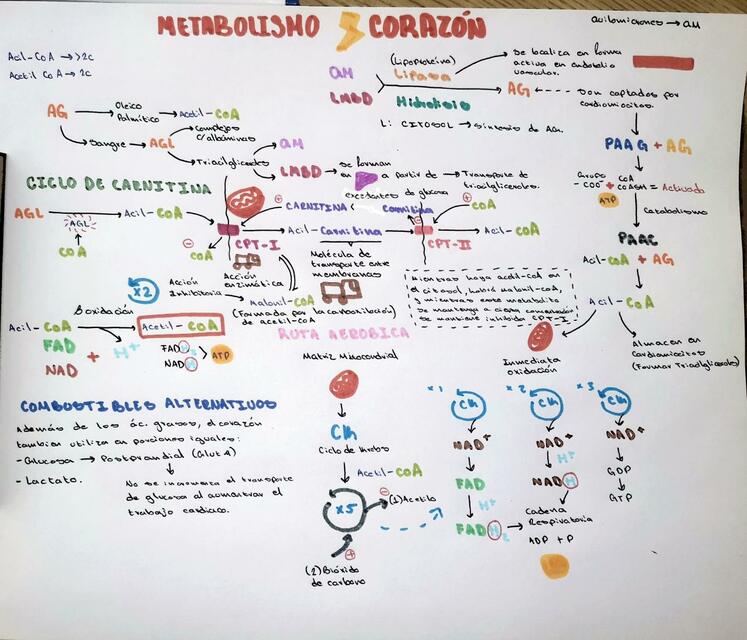 METABOLISMO CORAZÓN
Quilomicrones → QM
Acil-CoA → >2c
Acetil CoA → 2c
(Lipoproteína)
QM
LMBD
Lipasa
Hidrólisis
se localiza en forma
activa en endotelio
vascular.
AG
son captados por
cardiomiocitos.
L: CITOSOL → Síntesis de AG.
AG
Oleico
Palmítico
Acetil-CoA
Sangre → AGL
Complejos
c/albúminas
Triacilgliceroles
QM
LMBD → se forman
en
a partir de → Transporte de
triacilgliceroles.
excedentes de glucosa
PAAG + AG
Grupo
-COO⁻ + CoASH = Activada
CoA
ATP
Catabolismo
PAAC
Acil-CoA + AG
Acil-CoA
Inmediata
oxidación
Almacen en
cardiomiocitos
(Formar Triacilgliceroles)
CICLO DE CARNITINA
AGL → Acil-CoA
AGL
CoA
CoA
CPT-I
CARNITINA
Carnitina
CoA
Acil-Carnitina
CPT-II
Acil-CoA
Molécula de
transporte entre
membranas
Acción
enzimática
Acción
Inhibitoria
Malonil-CoA
(Formada por la carboxilación)
de acetil-CoA
Mientras haya acetil-CoA en
el citosol, habrá malonil-CoA,
y mientras este metabolito
se mantenga a cierta concentración
se mantiene inhibida CPT-I
x2
β oxidación
Acil-CoA
Acetil-CoA
FAD
NAD
+ H⁺
FADH₂
NADH
ATP
RUTA AEROBICA
Matriz Mitocondrial
Ck
Ciclo de Krebs
Acetil-CoA
x5
(1) Acetilo
(2) Dióxido
de carbono
COMBUSTIBLES ALTERNATIVOS
Además de los ác. grasos, el corazón
también utiliza en porciones iguales:
- Glucosa → Postprandial (Glut 4)
- Lactato.
No se incrementa el transporte
de glucosa al aumentar el
trabajo cardiaco.
x1
Ck
NAD⁺
FAD
H⁺
FADH₂
x2
Ck
NAD⁺
H⁺
NADH
Cadena
Respiratoria
ADP + P
x3
Ck
NAD⁺
GDP
GTP